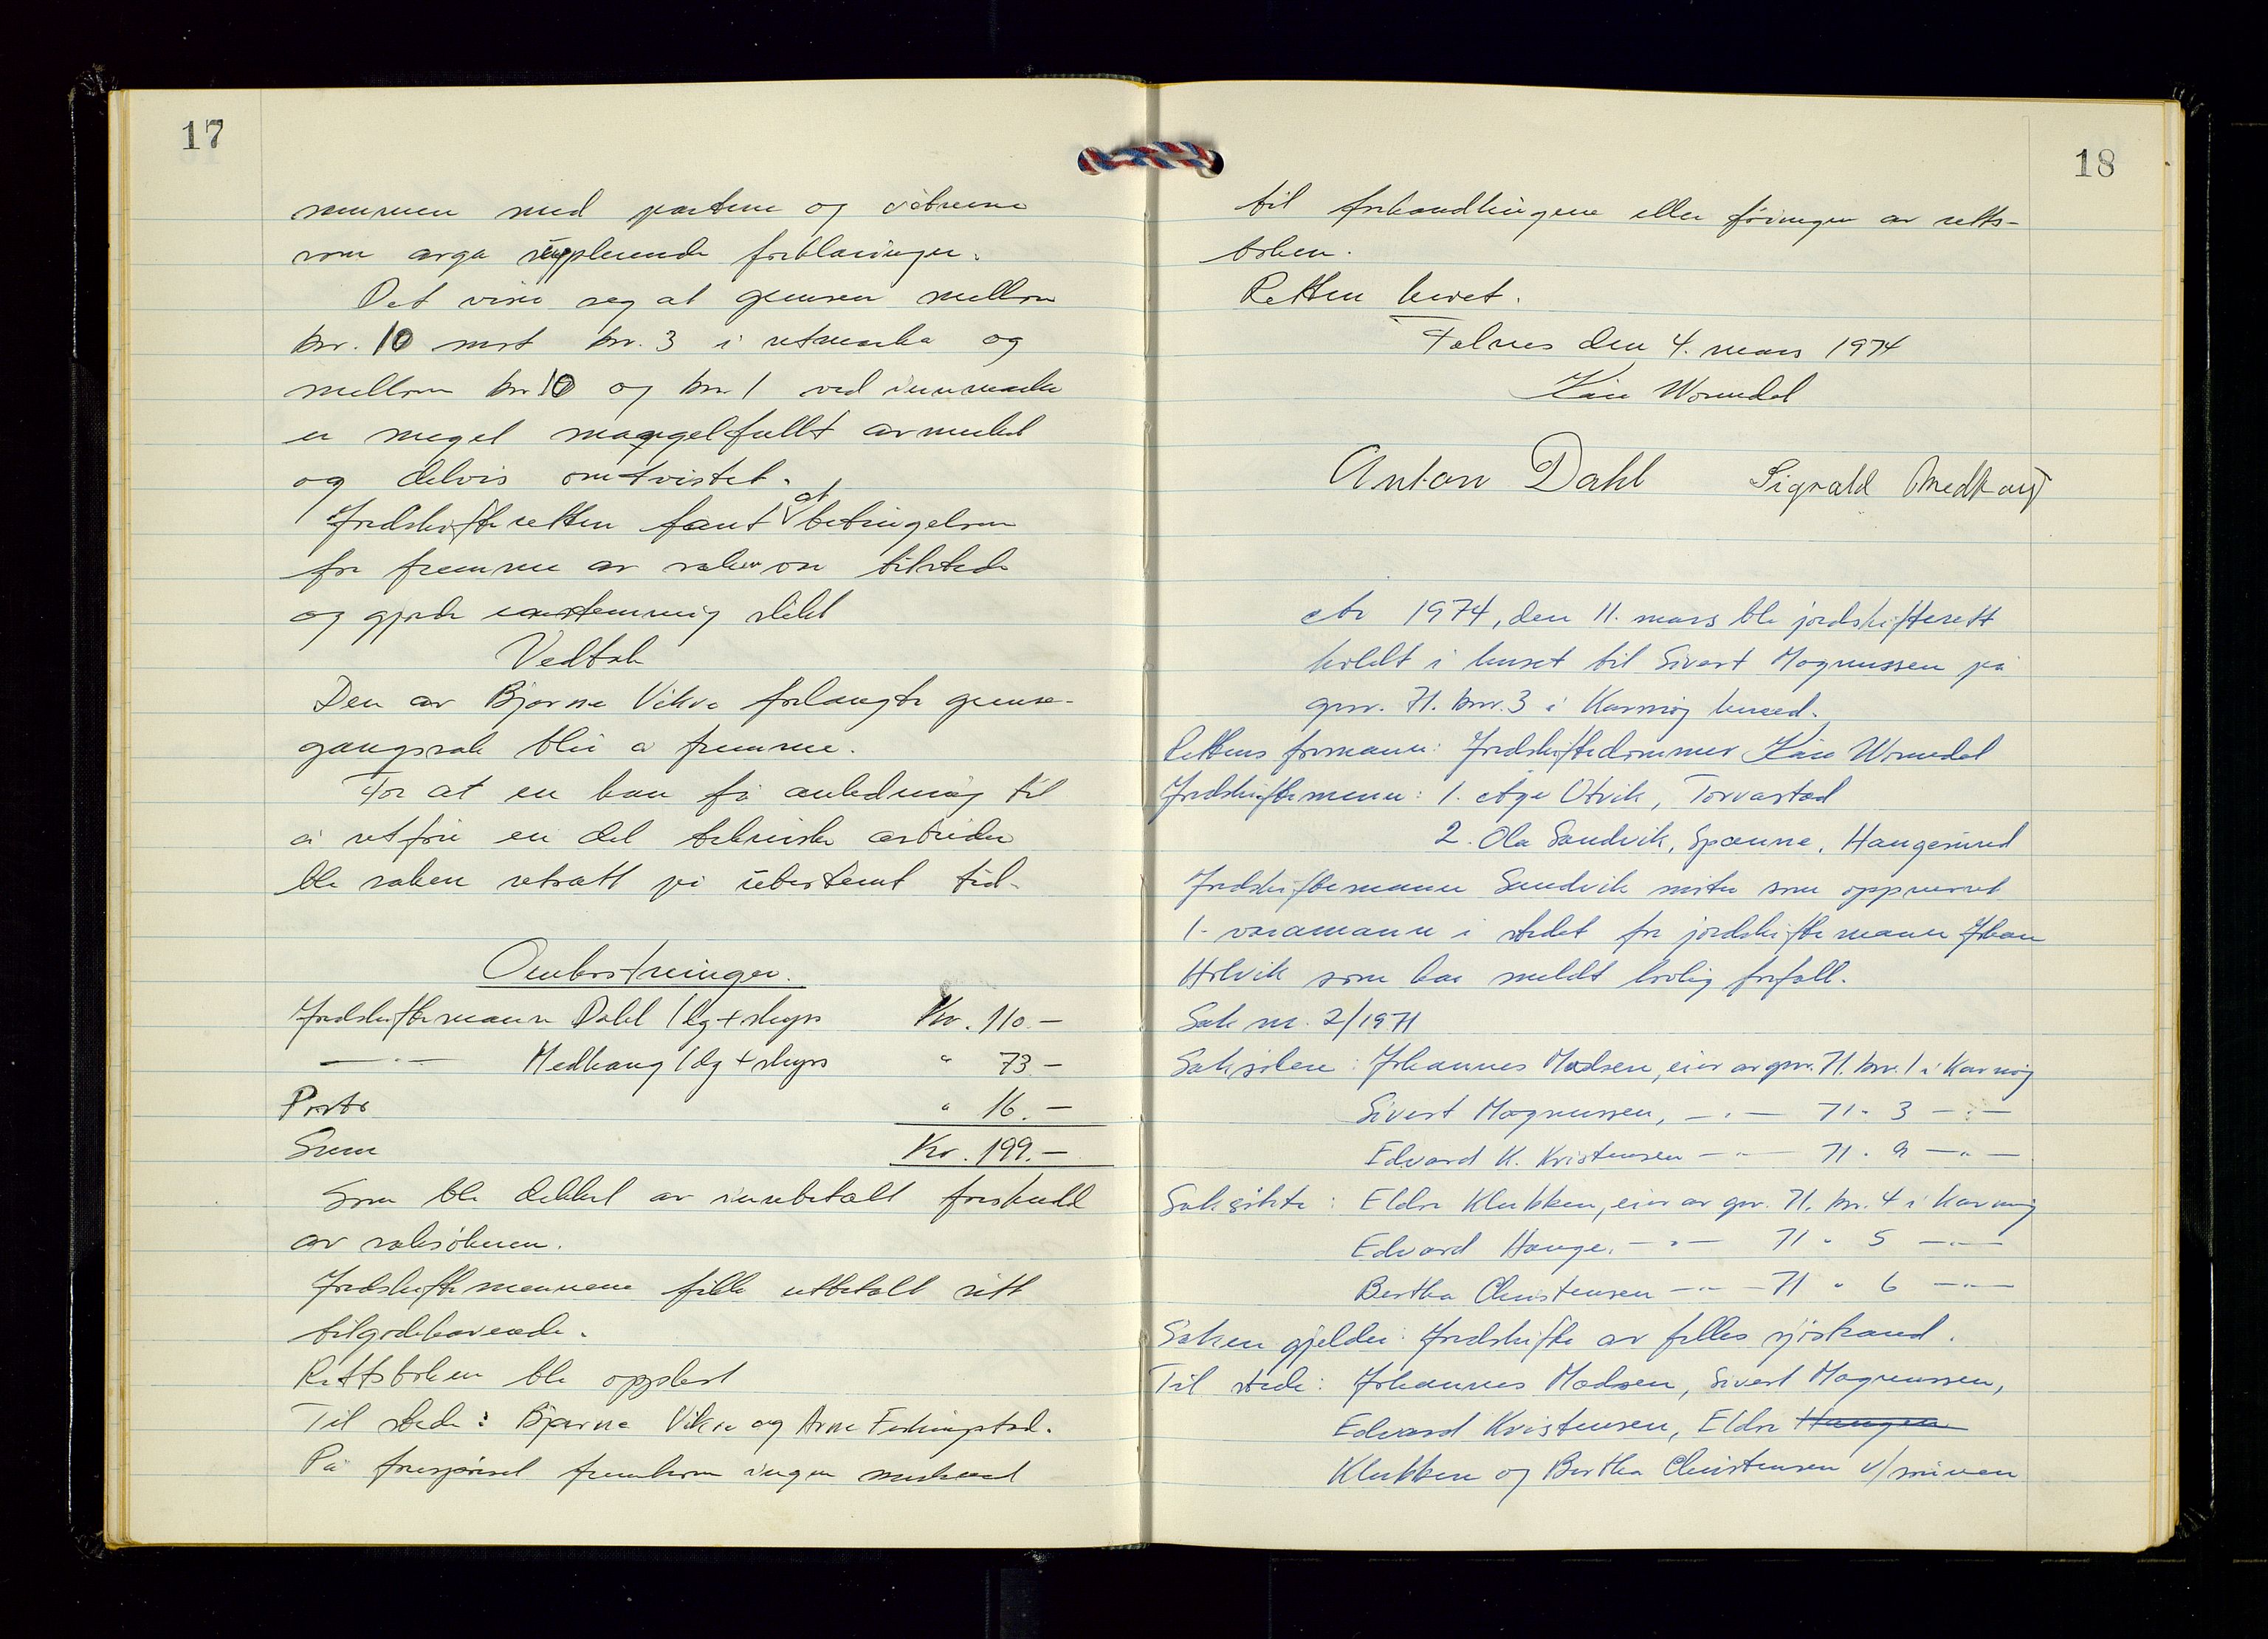 17
sammen med partene og vitnene
som avga supplerende forklaringer.
Det viser seg at grensen mellom
bnr. 10 mot bnr. 3 i utmarka og
mellom bnr 10 og bnr 1 ved innmarka
er meget mangelfullt avmerket
og delvis omtvistet.
Jordskifteretten fant at betingelsene
for fremme av saken var tilstede
og gjorde enstemmig slikt
Vedtak
Den av Bjarne Vikre forlangte grense-
gangssak blir å fremme.
For at en kan få anledning til
å utføre en del tekniske arbeider
ble saken utsatt på ubestemt tid.
Omkostninger.
Jordskiftemann Dahl 1 dg + skyss Kr. 110.-
—"— Medhaug 1 dg + skyss " 73.-
Porto " 16.-
Sum Kr. 199.-
Som ble dekket av innbetalt forskudd
av saksøkeren.
Jordskiftemennene fikk utbetalt sitt
tilgodehavende.
Rettsboken ble opplest
Til stede: Bjarne Vikre og Arne Ferkingstad.
På forespørsel fremkom ingen merknad
18
til forhandlingene eller føringen av retts-
boken.
Retten hevet.
Falnes den 4. mars 1974
Kåre Wormdal
Anton Dahl Sigvald Medhaug
År 1974, den 11. mars ble jordskifterett
holdt i huset til Sivert Magnussen på
gnr. 71. bnr. 3 i Karmøy herred.
Rettens formann: Jordskiftedommer Kåre Wormdal
Jordskiftemenn: 1. Åge Utvik, Torvastad
2. Ola Sandvik, Spanne, Haugesund
Jordskiftemann Sandvik møtte som oppnevnt
1. varamann i stedet for jordskiftemann Johan
Holvik som har meldt lovlig forfall.
Sak nr. 2/1971
Saksøkere: Johannes Madsen, eier av gnr. 71. bnr. 1 i Karmøy
Sivert Magnussen, —"— 71. 3 —"—
Edvard K. Kristensen —"— 71. 9 —"—
Saksøkte: Eldor Klubben, eier av gnr. 71. bnr. 4 i Karmøy
Edvard Hauge, —"— 71 " 5 —"—
Bertha Christensen —"— 71 " 6 —"—
Saken gjelder: Jordskifte av felles sjøstrand.
Til stede: Johannes Madsen, Sivert Magnussen,
Edvard Kristensen, Eldor Haugen
Klubben og Bertha Christensen v/ sønnen